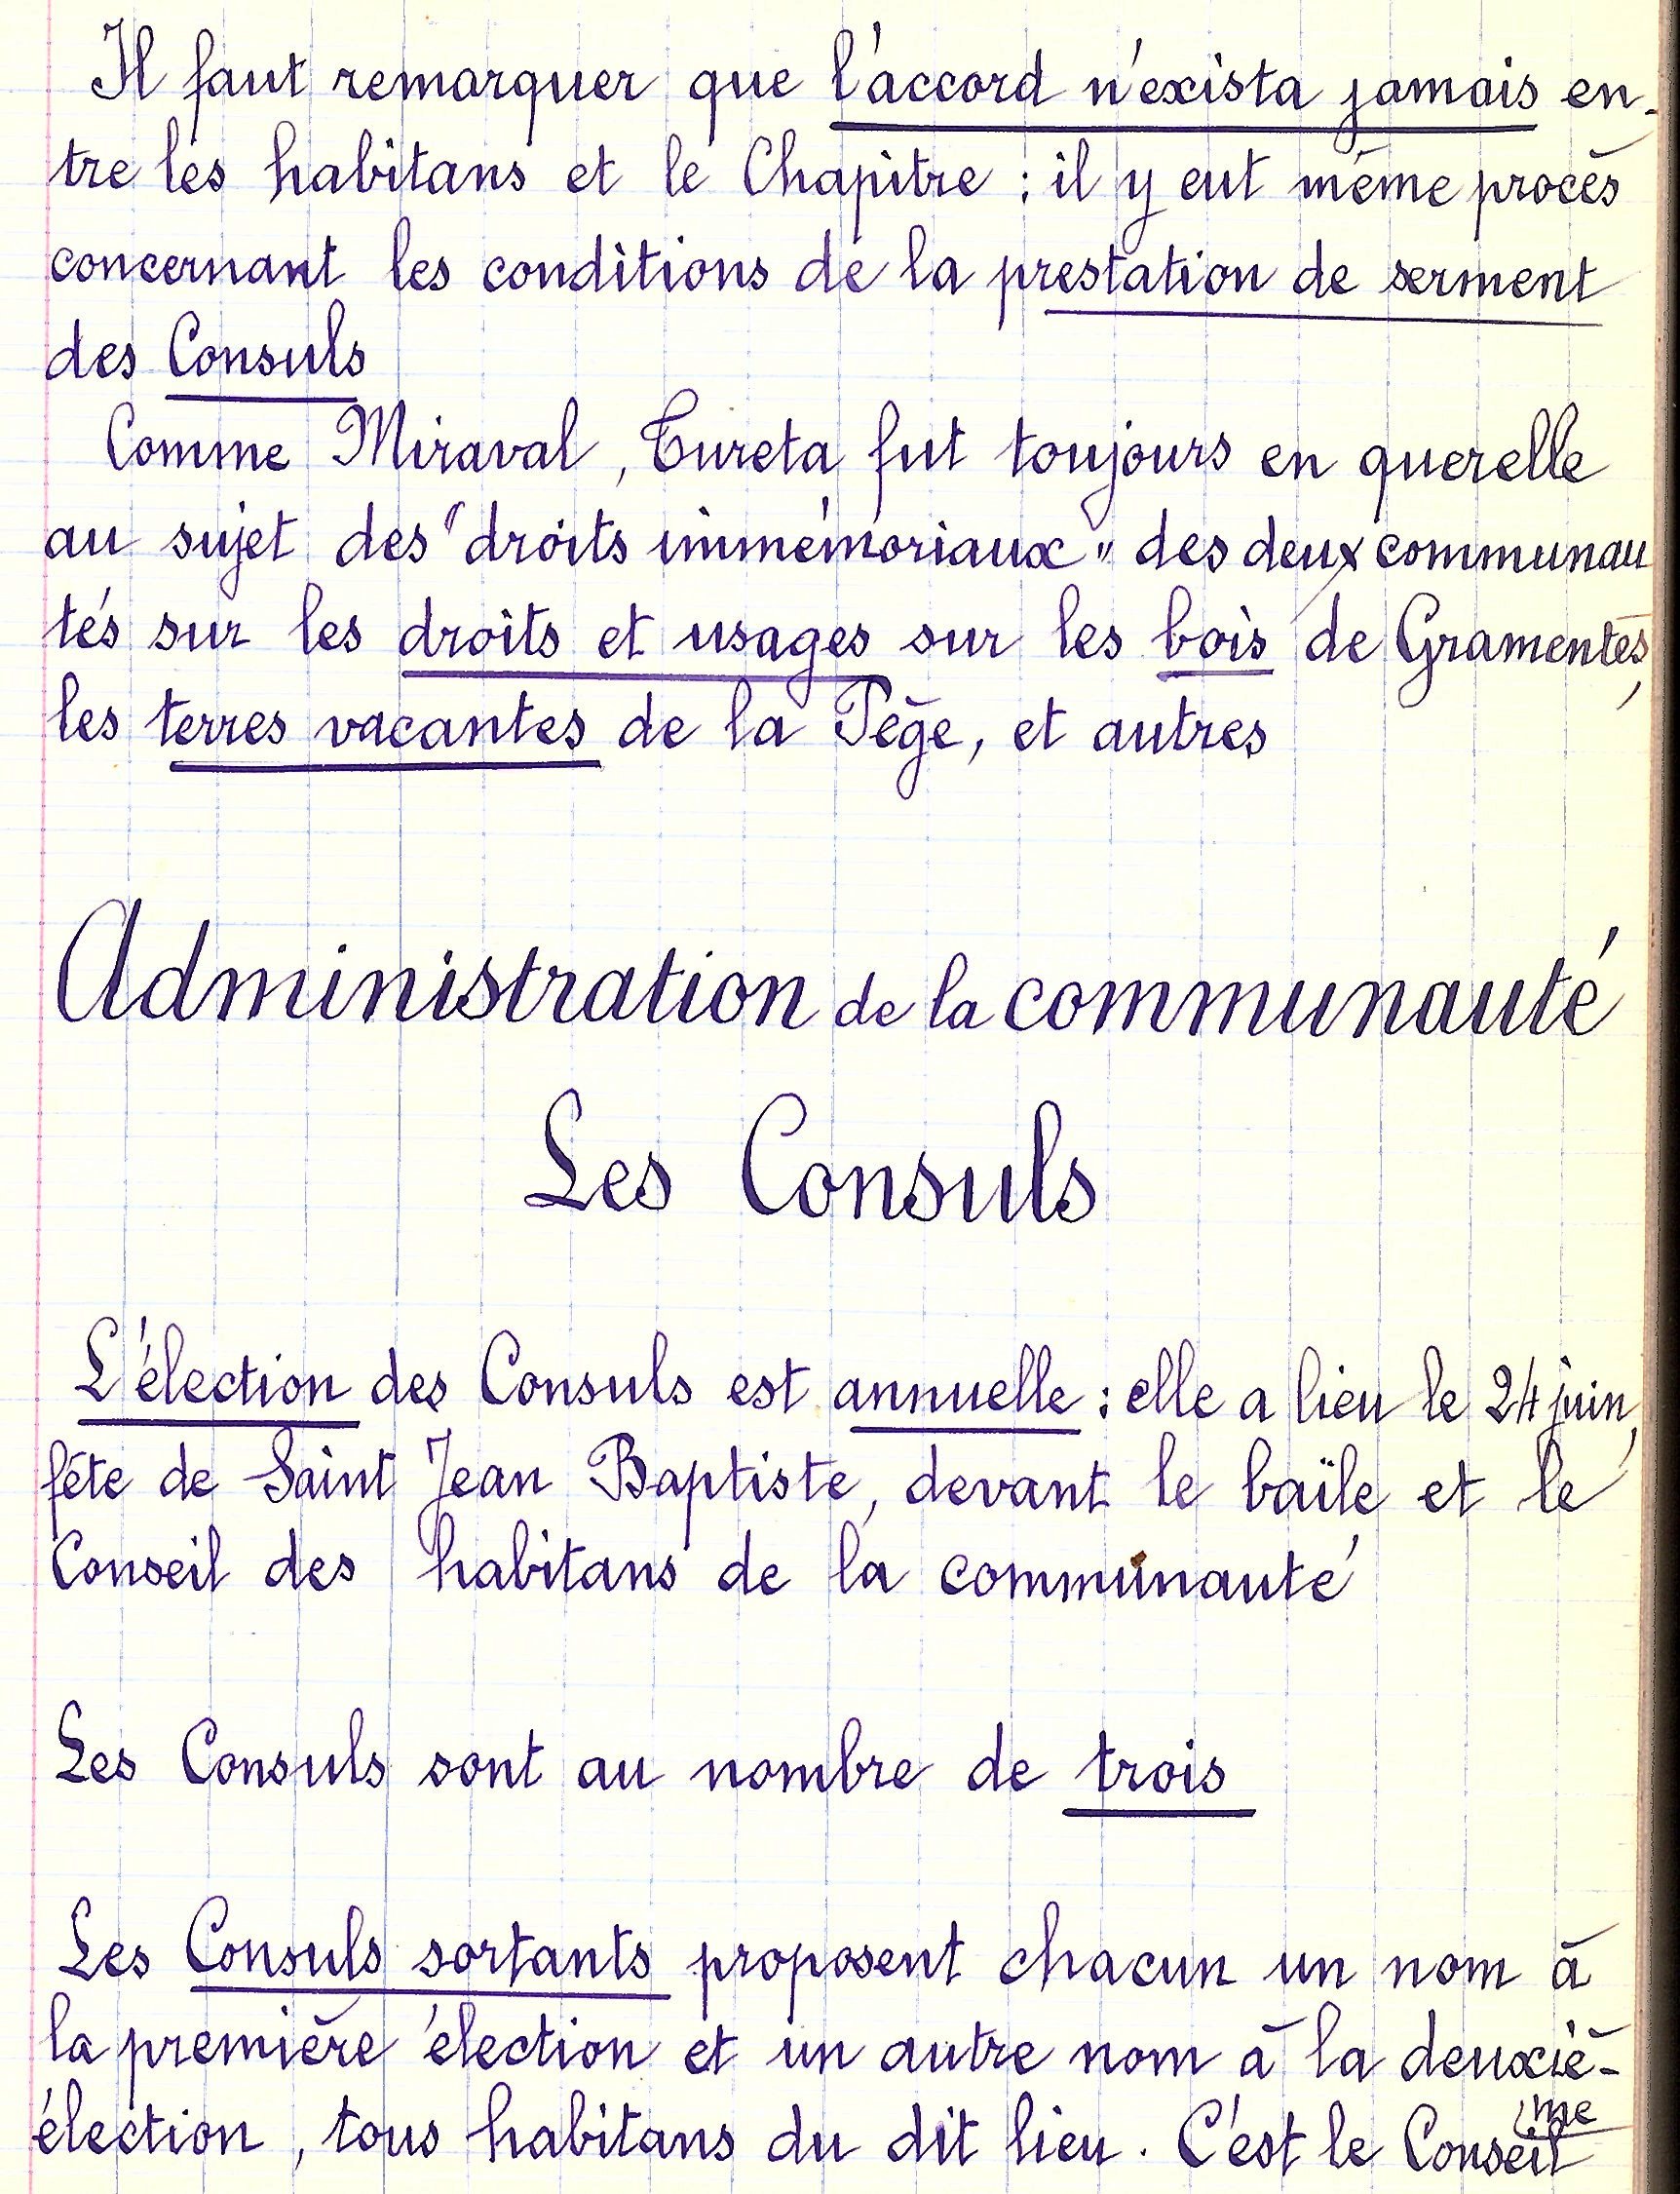 Il faut remarquer que l'accord n'exista jamais en-
tre les habitans et le Chapitre : il y eut même procès
concernant les conditions de la prestation de serment
des Consuls
Comme Miraval, Cureta fut toujours en querelle
au sujet des "droits immémoriaux" des deux communau
tés sur les droits et usages sur les bois de Gramentès,
les terres vacantes de la Pège, et autres
Administration de la communauté
Les Consuls
L'élection des Consuls est annuelle : elle a lieu le 24 juin,
fête de Saint Jean Baptiste, devant le baïle et le
Conseil des habitans de la communauté
Les Consuls sont au nombre de trois
Les Consuls sortants proposent chacun un nom à
la première élection et un autre nom à la deuxiè-
me
élection, tous habitans du dit lieu. C'est le Conseil